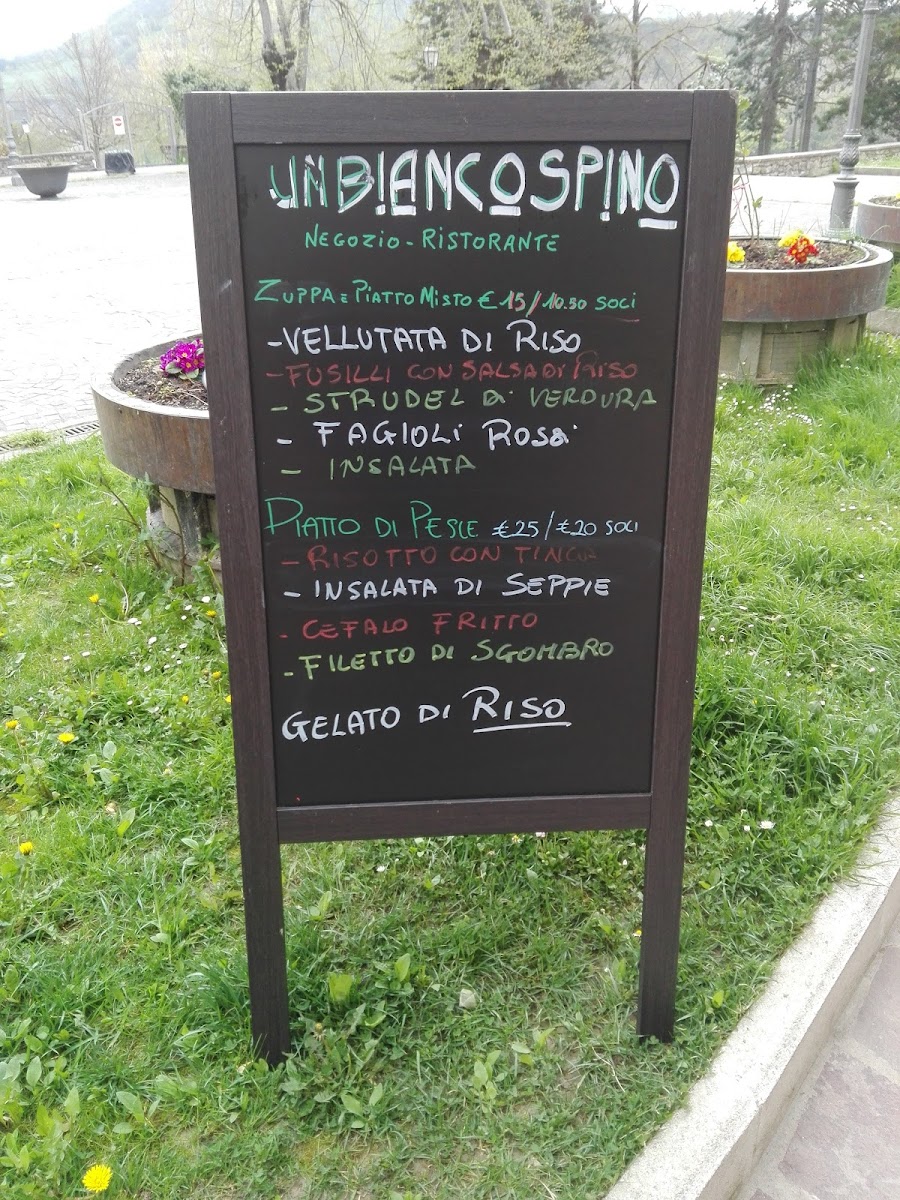 UN BIANCOSPINO
NEGOZIO - RISTORANTE
ZUPPA E PIATTO MISTO € 15/10.50 SOCI
- VELLUTATA DI RISO
- FUSILLI CON SALSA DI RISO
- STRUDEL DI VERDURA
- FAGIOLI ROSSI
- INSALATA
PIATTO DI PESCE €25/€20 SOCI
- RISOTTO CON TINCA
- INSALATA DI SEPPIE
- CEFALO FRITTO
- FILETTO DI SGOMBRO
GELATO DI RISO